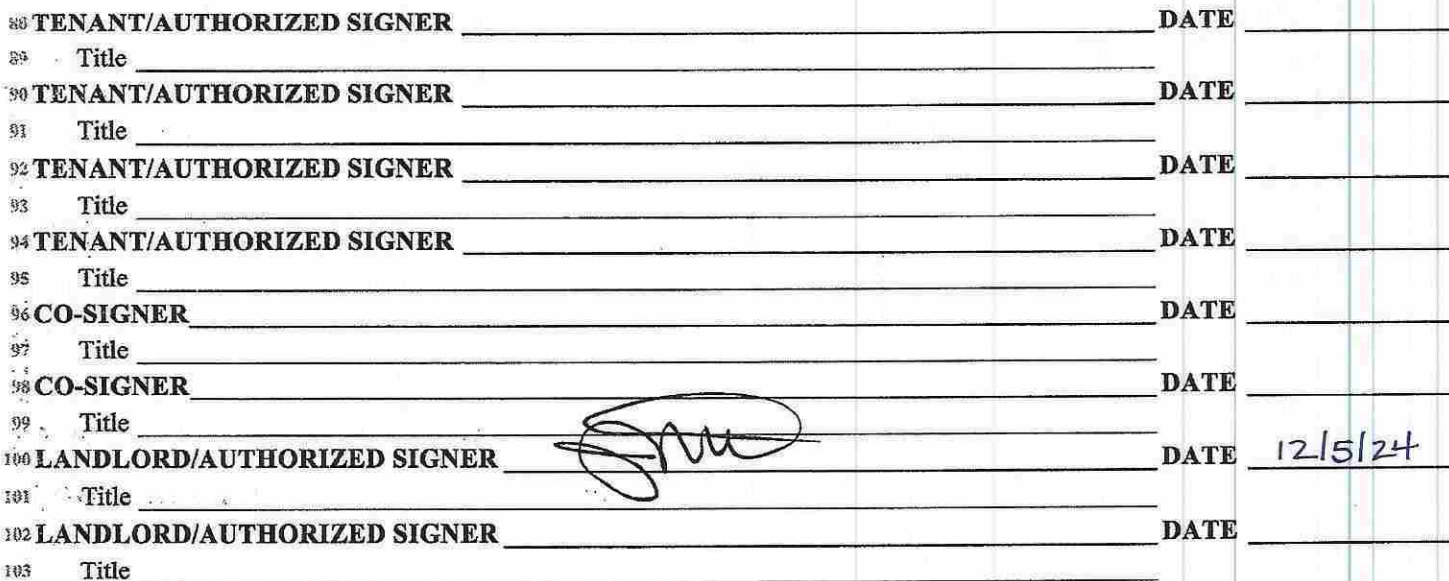 88 TENANT/AUTHORIZED SIGNER DATE
89 Title
90 TENANT/AUTHORIZED SIGNER DATE
91 Title
92 TENANT/AUTHORIZED SIGNER DATE
93 Title
94 TENANT/AUTHORIZED SIGNER DATE
95 Title
96 CO-SIGNER DATE
97 Title
98 CO-SIGNER DATE
99 Title
100 LANDLORD/AUTHORIZED SIGNER DATE 12/5/24
101 Title
102 LANDLORD/AUTHORIZED SIGNER DATE
103 Title